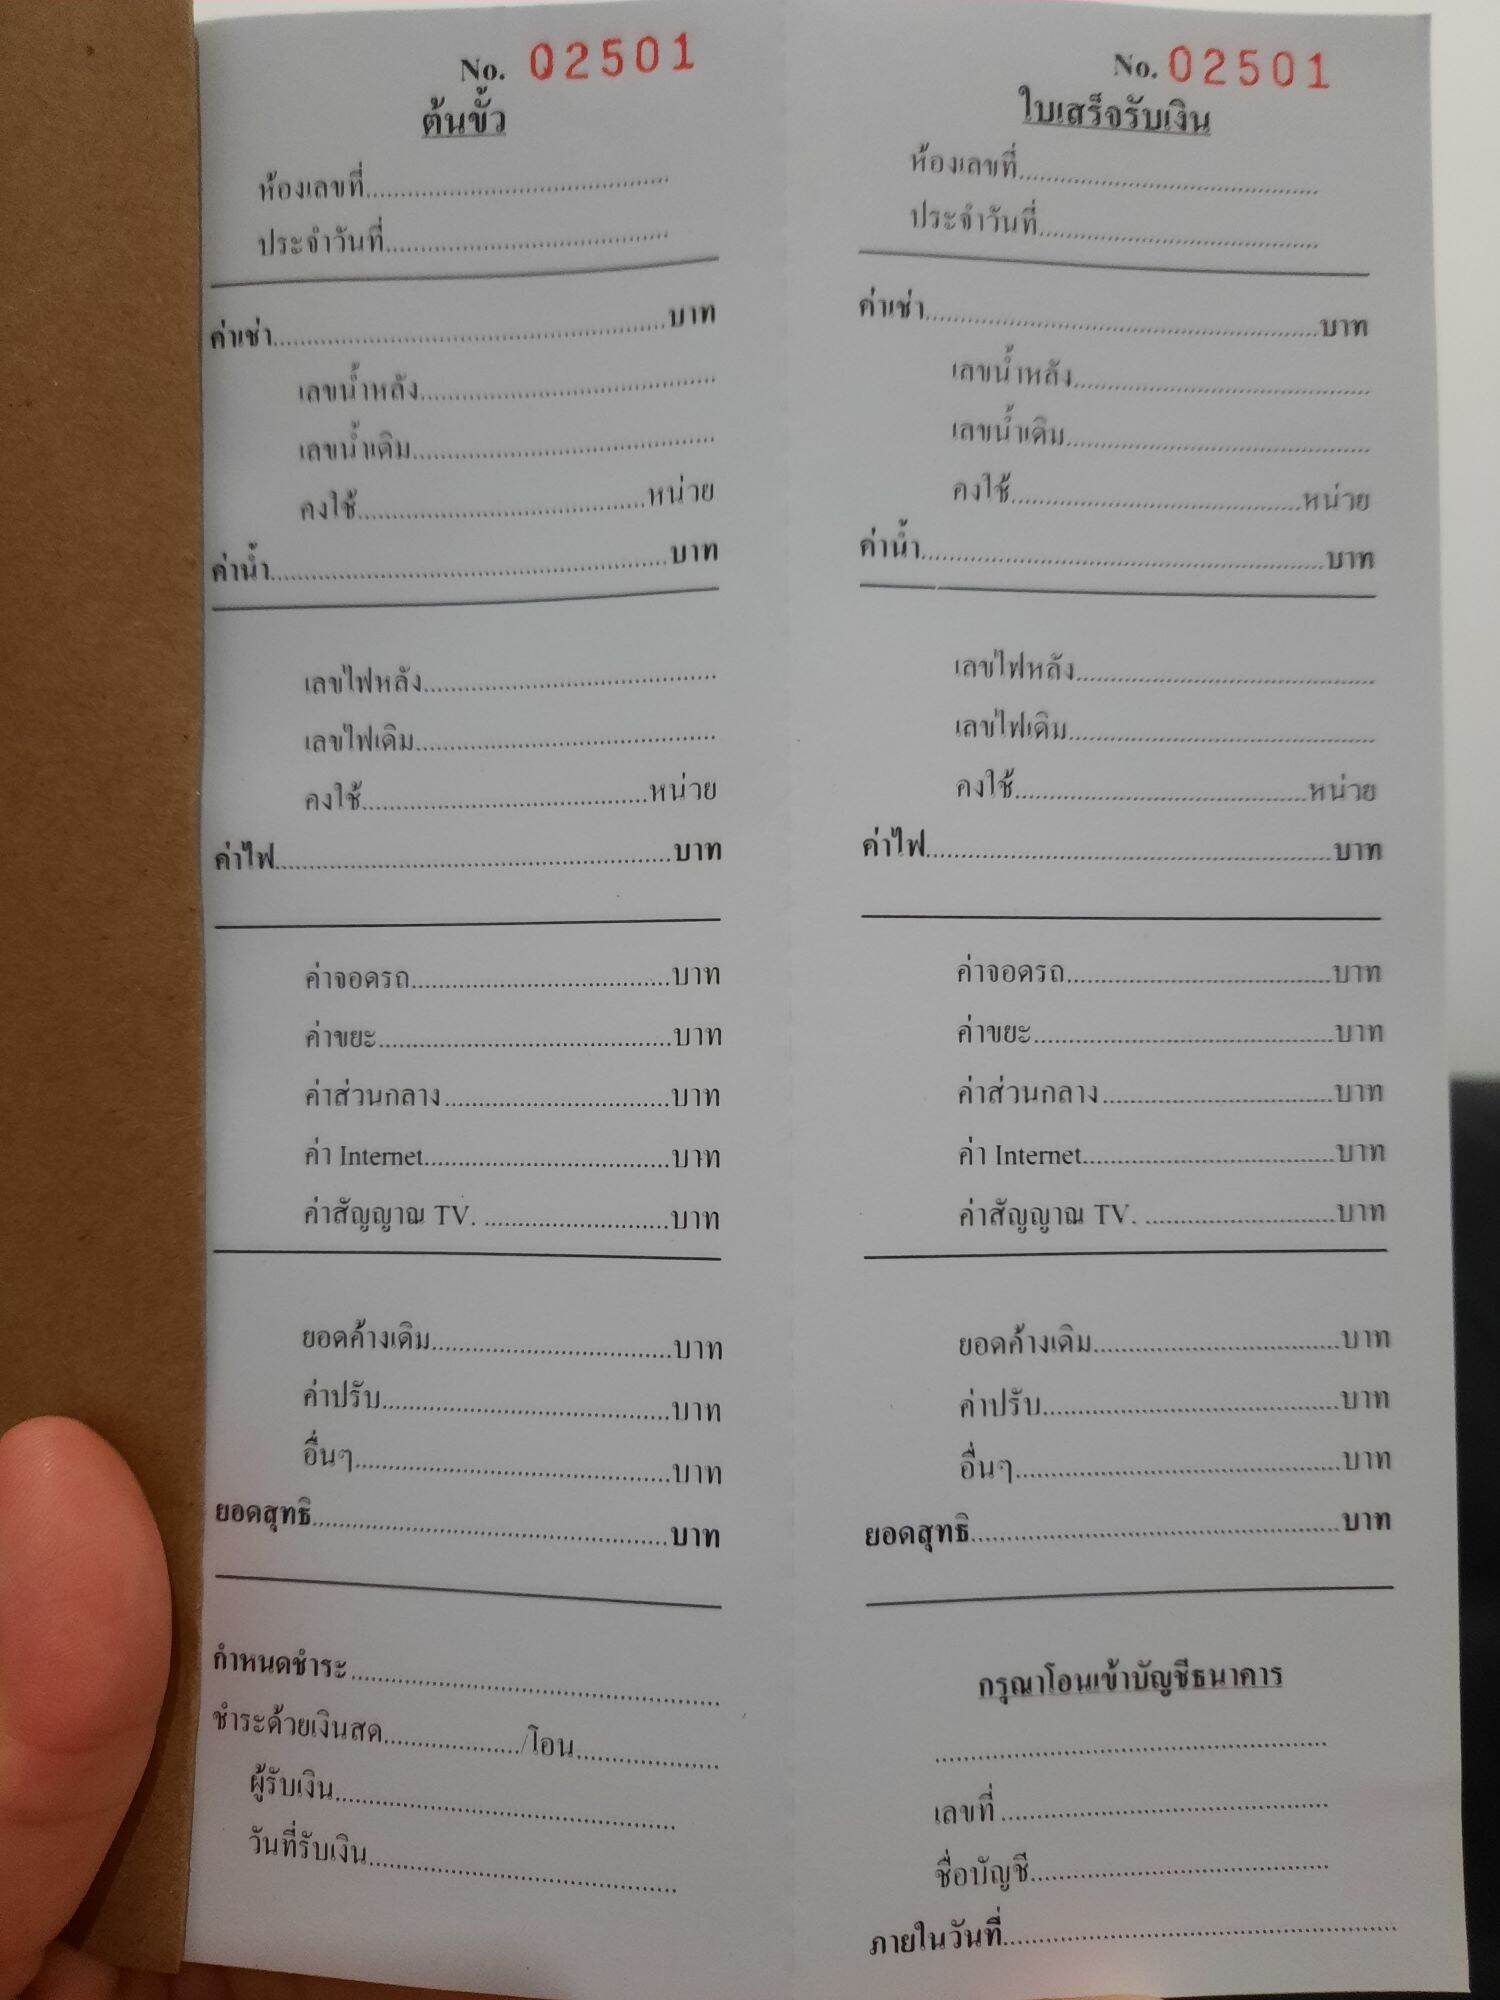 No. 02501
ต้นขั้ว
ห้องเลขที่........................................
ประจำวันที่........................................
ค่าเช่า........................................บาท
เลขน้ำหลัง........................................
เลขน้ำเดิม........................................
คงใช้........................................หน่วย
ค่าน้ำ........................................บาท
เลขไฟหลัง........................................
เลขไฟเดิม........................................
คงใช้........................................หน่วย
ค่าไฟ........................................บาท
ค่าจอดรถ........................................บาท
ค่าขยะ........................................บาท
ค่าส่วนกลาง........................................บาท
ค่า Internet........................................บาท
ค่าสัญญาณ TV. ........................................บาท
ยอดค้างเดิม........................................บาท
ค่าปรับ........................................บาท
อื่นๆ........................................บาท
ยอดสุทธิ........................................บาท
กำหนดชำระ........................................
ชำระด้วยเงินสด..................../โอน....................
ผู้รับเงิน........................................
วันที่รับเงิน........................................
No. 02501
ใบเสร็จรับเงิน
ห้องเลขที่........................................
ประจำวันที่........................................
ค่าเช่า........................................บาท
เลขน้ำหลัง........................................
เลขน้ำเดิม........................................
คงใช้........................................หน่วย
ค่าน้ำ........................................บาท
เลขไฟหลัง........................................
เลขไฟเดิม........................................
คงใช้........................................หน่วย
ค่าไฟ........................................บาท
ค่าจอดรถ........................................บาท
ค่าขยะ........................................บาท
ค่าส่วนกลาง........................................บาท
ค่า Internet........................................บาท
ค่าสัญญาณ TV. ........................................บาท
ยอดค้างเดิม........................................บาท
ค่าปรับ........................................บาท
อื่นๆ........................................บาท
ยอดสุทธิ........................................บาท
กรุณาโอนเข้าบัญชีธนาคาร
........................................
เลขที่ ........................................
ชื่อบัญชี........................................
ภายในวันที่........................................